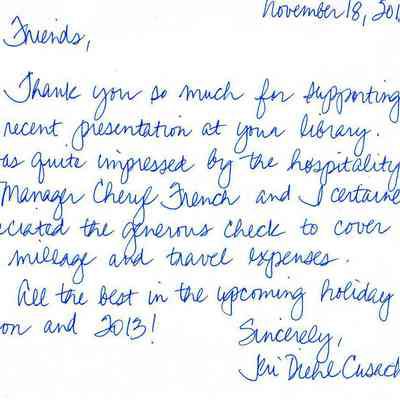 November 18, 201
Friends,
Thank you so much for supporting
recent presentation at your library.
as quite impressed by the hospitality
Manager Cheryl French and I certaine
eciated the generous check to cover
mileage and travel expenses.
All the best in the upcoming holiday
on and 2013!
Sincerely,
Jeri Diehl Cusack